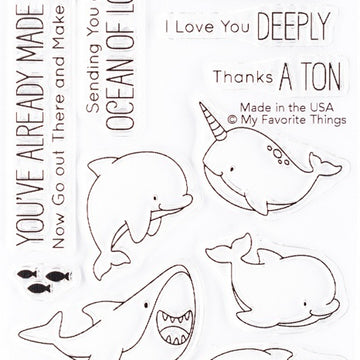 YOU'VE ALREADY MADE
Now Go out There and Make
Sending You
OCEAN OF
I Love You DEEPLY
Thanks A TON
Made in the USA
© My Favorite Things